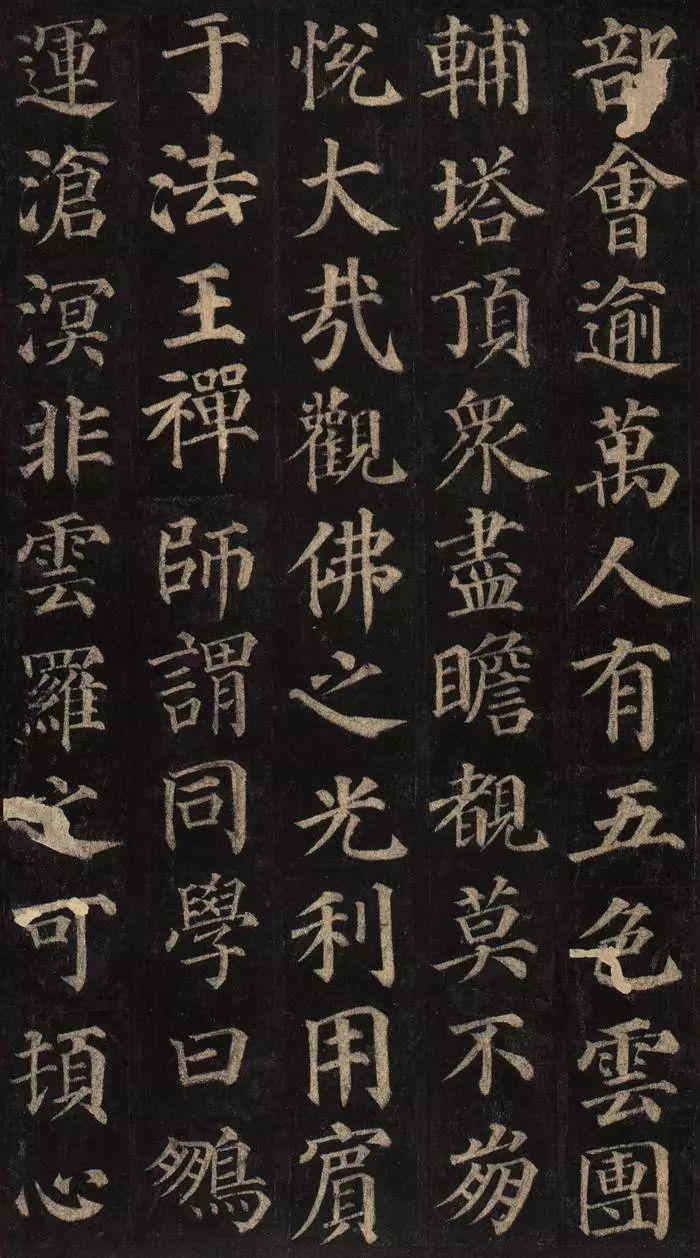 部會逾萬人有五色雲團
輔塔頂衆盡瞻覩莫不崩
悅大哉觀佛之光利用賓
于法王禪師謂同學曰鵬
運滄溟非雲羅之可頓心